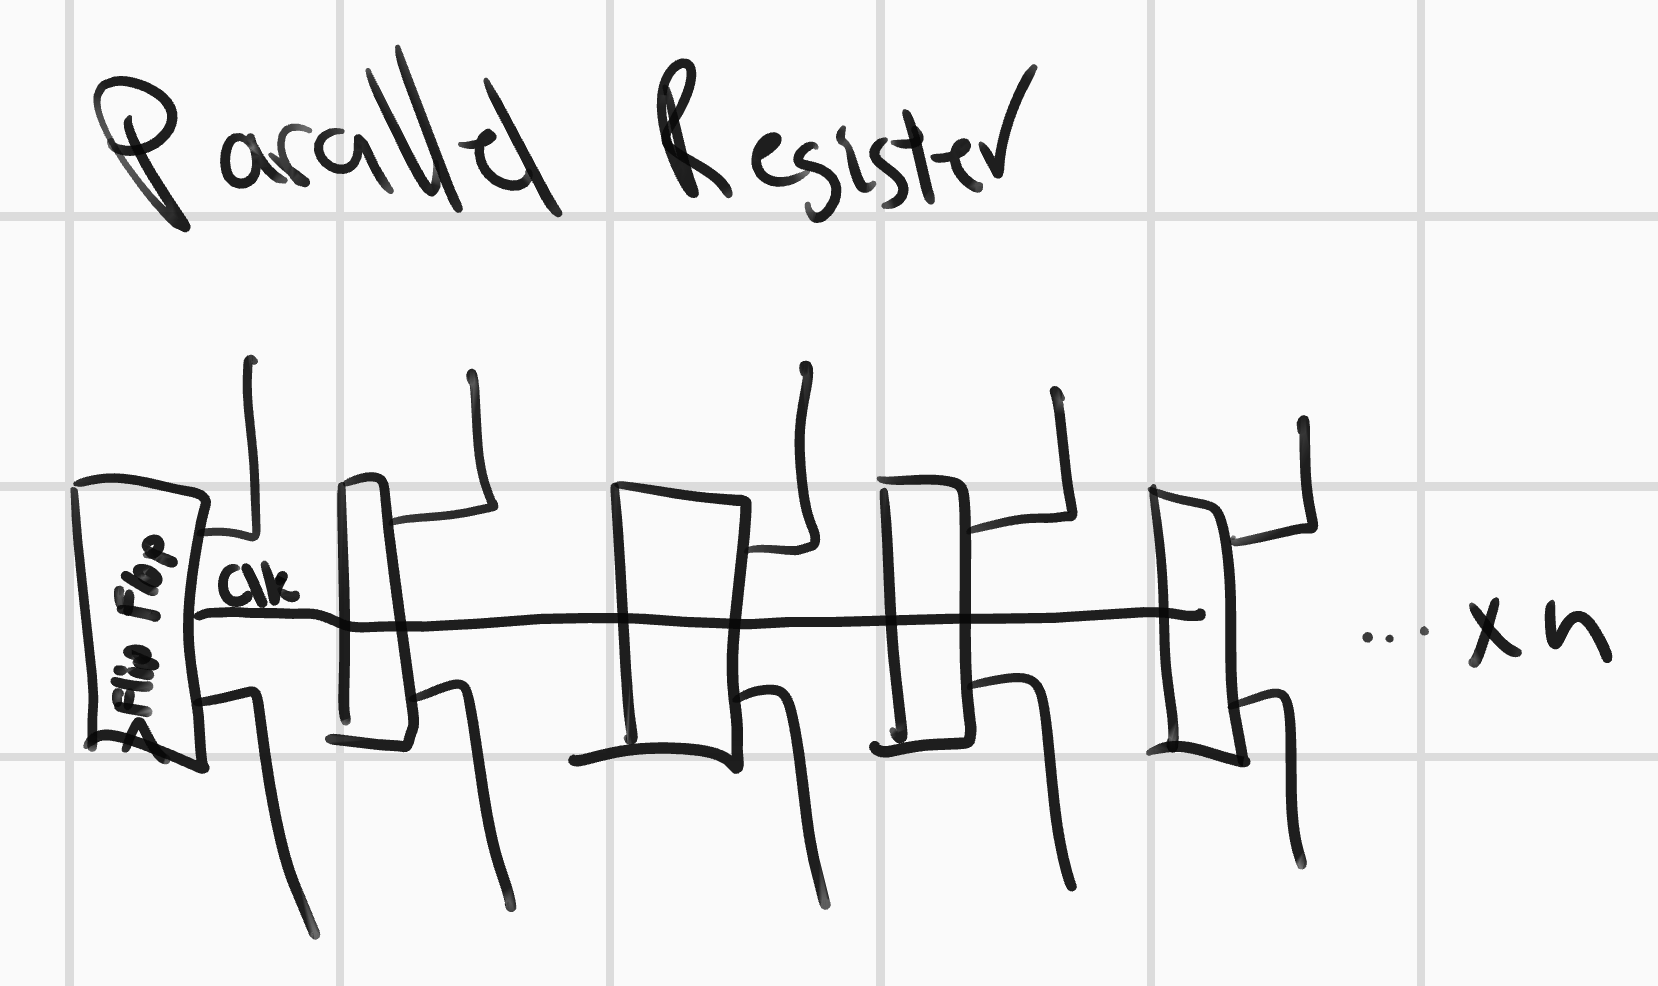 Parallel Register
Flip Flop
Clk
... x n